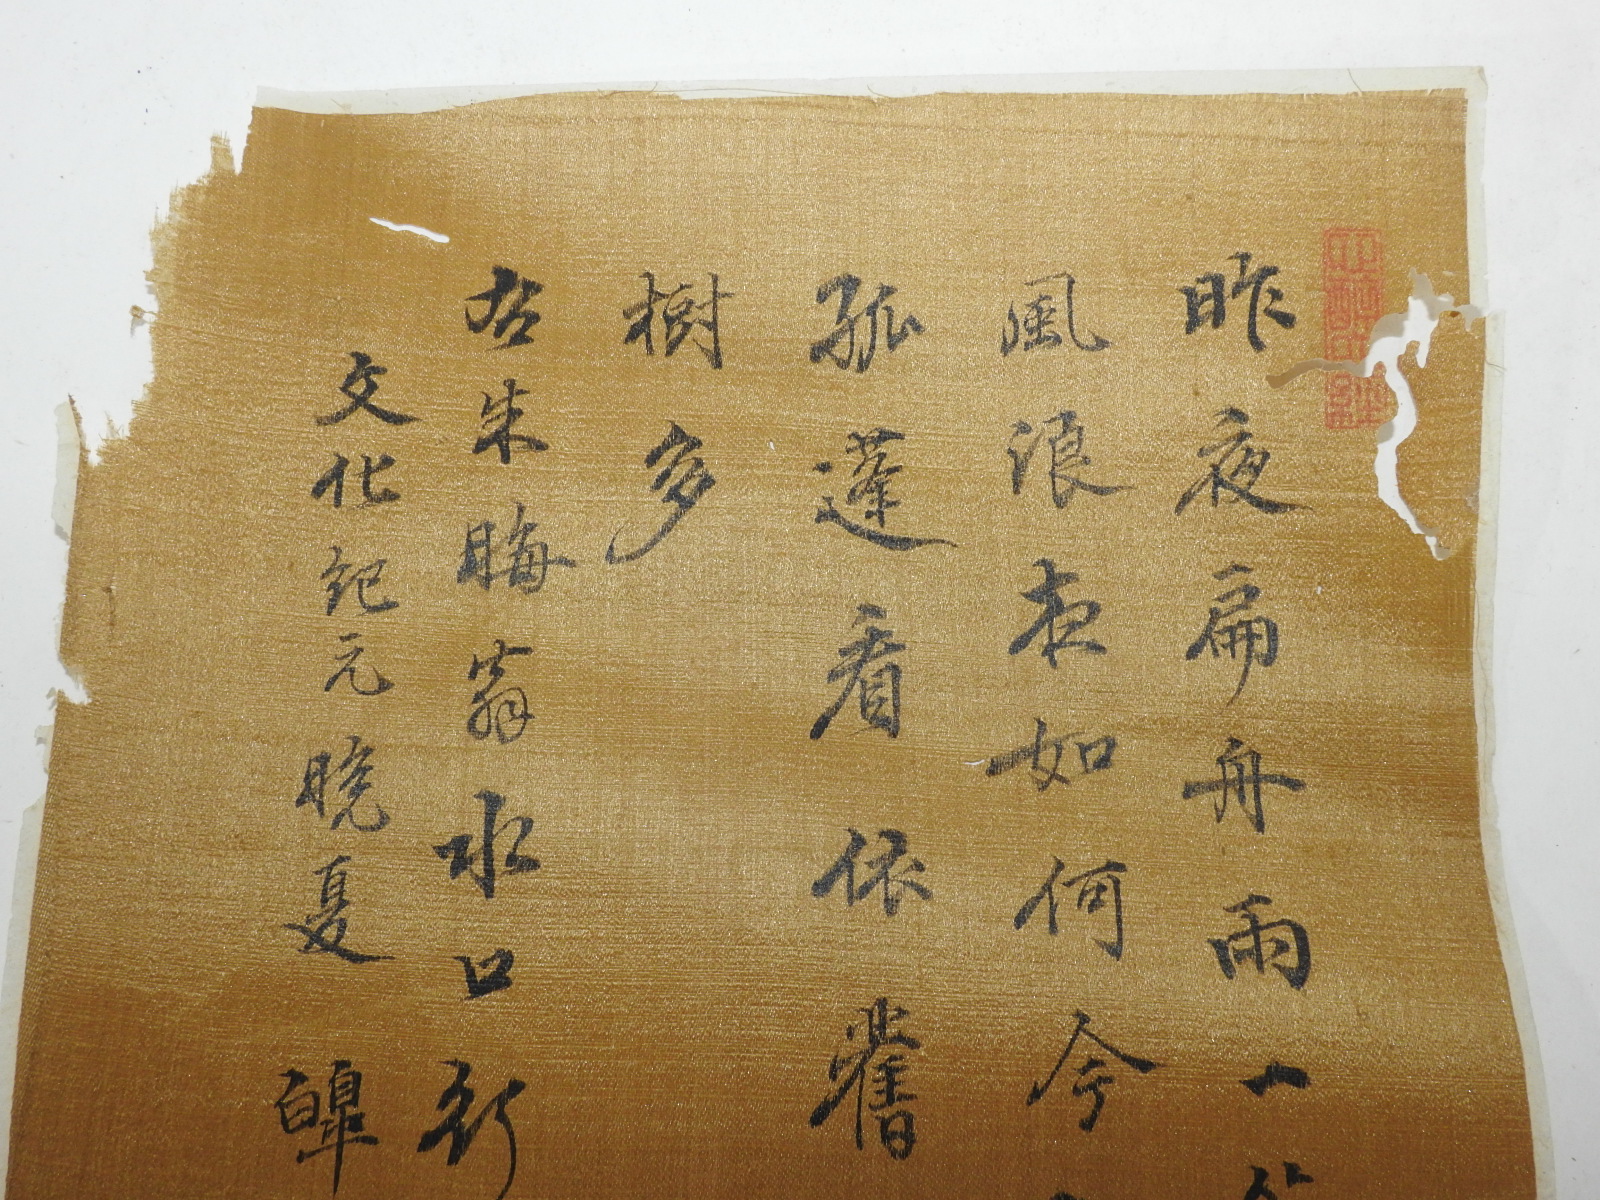 昨夜扁舟雨一
風浪夜如何今
孤蓬看依舊
樹多
右朱晦翁水口行
文化紀元曉夏 皞